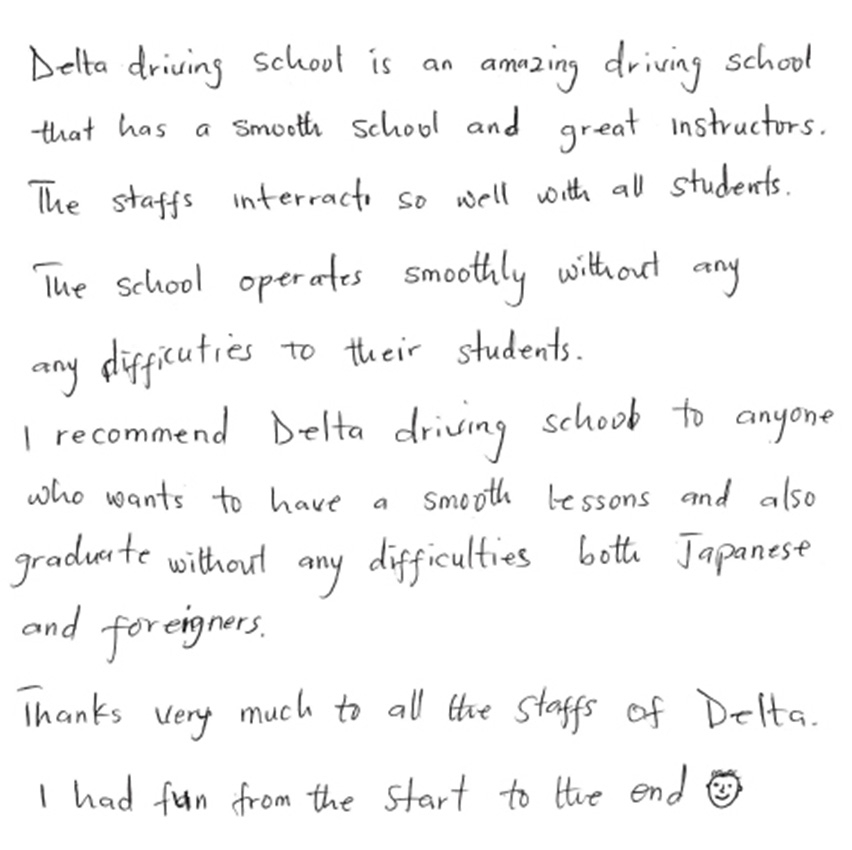 Delta driving school is an amazing driving school
that has a smooth school and great instructors.
The staffs interract so well with all students.
The school operates smoothly without any
any difficuties to their students.
I recommend Delta driving school to anyone
who wants to have a smooth lessons and also
graduate without any difficulties both Japanese
and foreigners.
Thanks very much to all the staffs of Delta.
I had fun from the start to the end